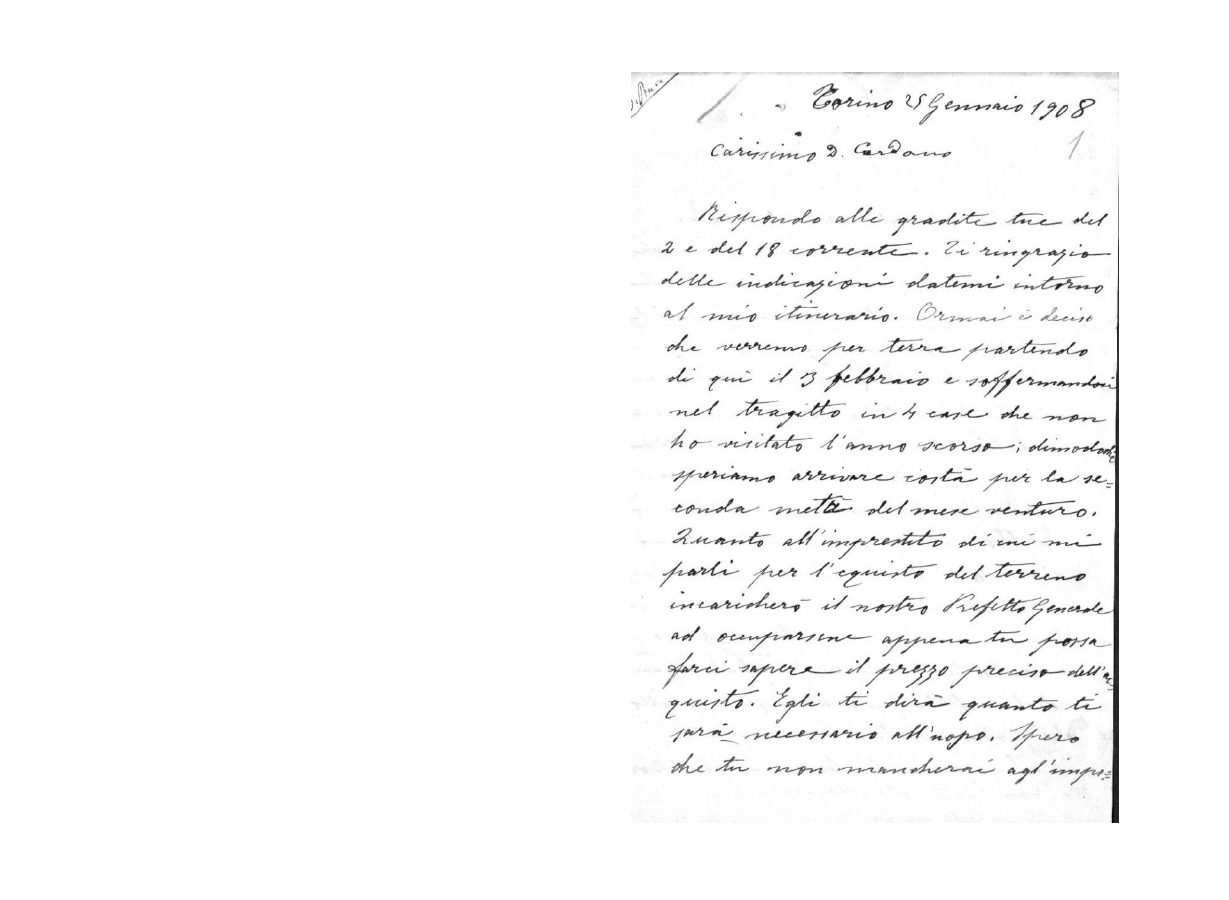 Torino 25 Gennaio 1908
1
Carissimo D. Cardano
Rispondo alle gradite tue del
2 e del 18 corrente. Ti ringrazio
delle indicazioni datemi intorno
al mio itinerario. Ormai è deciso
che verremo per terra partendo
di qui il 3 febbraio e soffermandoci
nel tragitto in 4 case che non
ho visitato l'anno scorso; dimodochè
speriamo arrivare costà per la se=
conda metà del mese venturo.
Quanto all'imprestito di cui mi
parli per l'equisto del terreno
incaricherò il nostro Prefetto Generale
ad occuparsene appena tu possa
farci sapere il prezzo preciso dell'ac=
quisto. Egli ti dirà quanto ti
sarà necessario all'uopo. Spero
che tu non mancherai agl'impe=